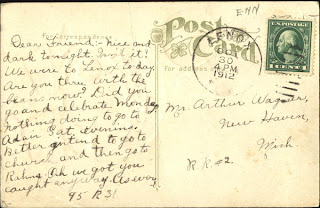 ENN
Post Card
For Correspondence
Dear Friend:- Nice and
dark tonight. Isn't it!
We were to Lenox today
Are you thru with the
beans now? Did you
go and celebrate Monday
nothing doing to go to
Adair Sat evening.
Better intend to go to
church and then go to
Ah we got you
caught anyway. As ever
95 R 31
LENOX
30
4 PM
1912
U.S. POSTAGE
1 CENT 1
Mr. Arthur Wagner,
New Haven,
Mich.
R.R. #2.